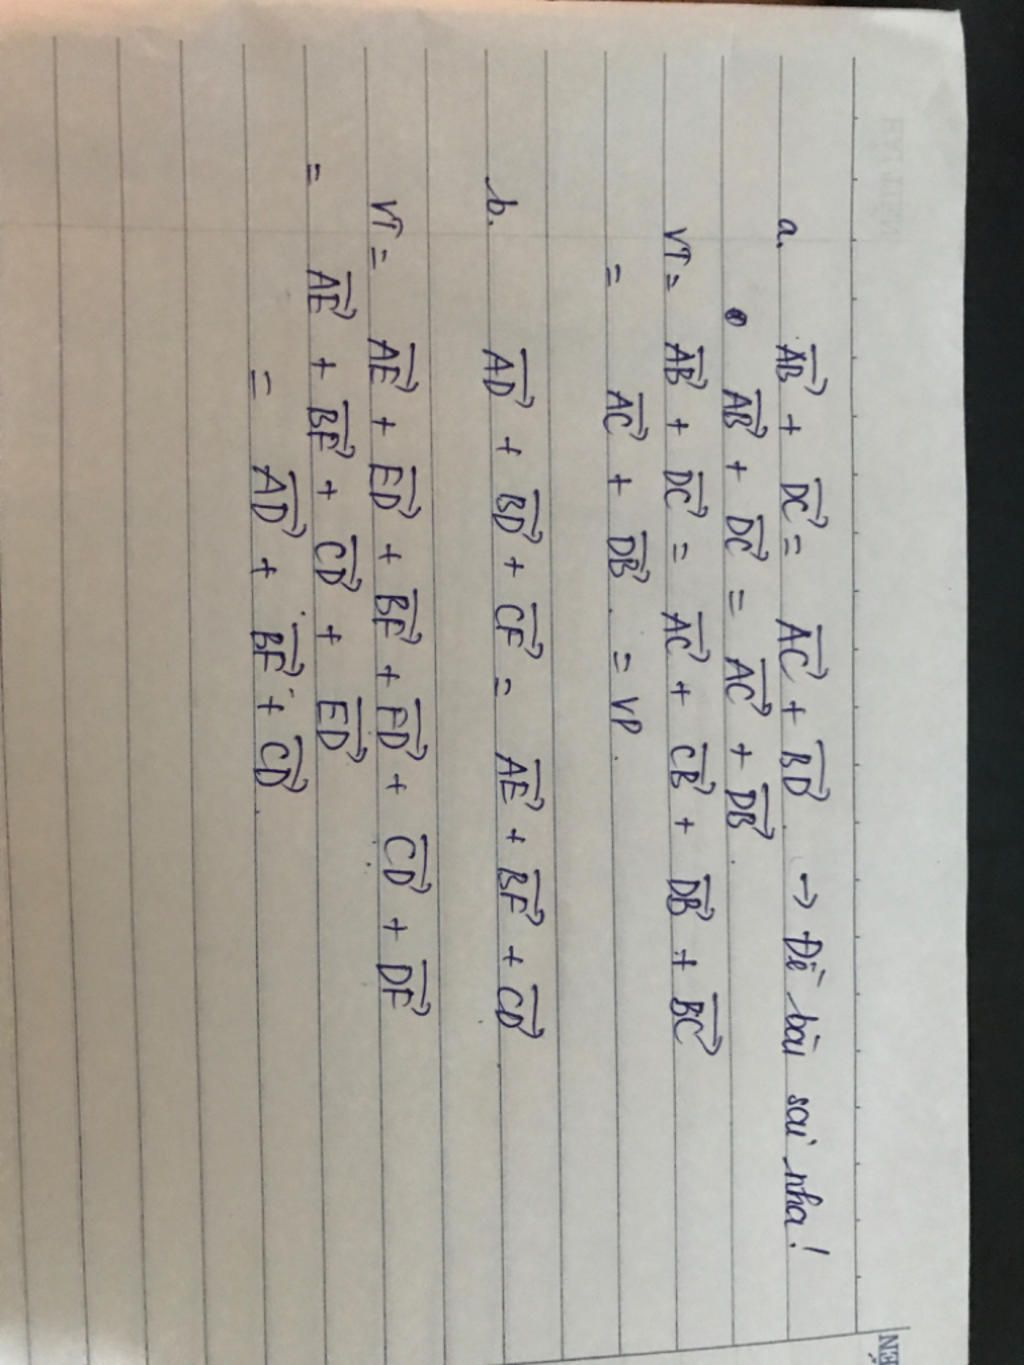 a. AB→ + DC→ = AC→ + BD→. → Đề bài sai nha!
AB→ + DC→ = AC→ + DB→.
VT = AB→ + DC→ = AC→ + CB→ + DB→ + BC→
= AC→ + DB→. = VP.
b. AD→ + BD→ + CF→ = AE→ + BF→ + CD→
VT = AE→ + ED→ + BF→ + FD→ + CD→ + DF→
= AE→ + BF→ + CD→ + ED→
= AD→ + BF→ + CD→.